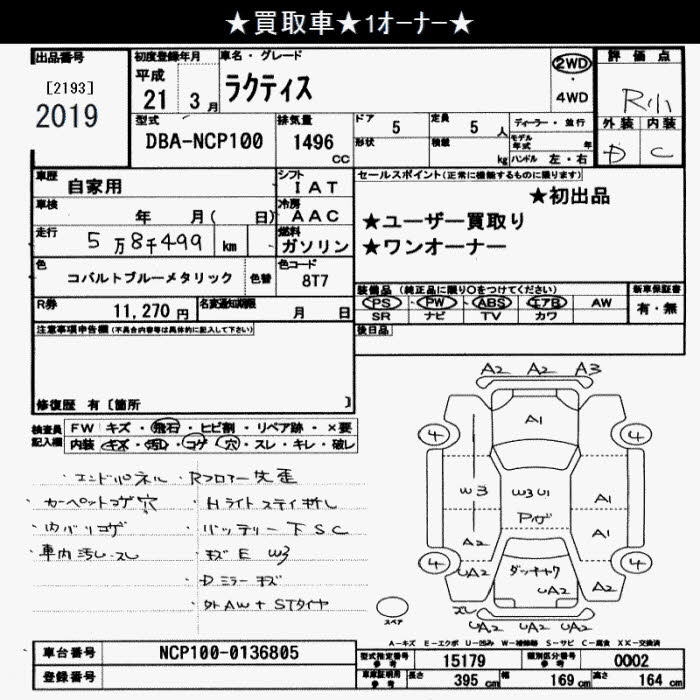 ★買取車★1オーナー★
出品番号
[2193]
2019
初度登録年月
平成
21 3月
車名・グレード
ラクティス
2WD
4WD
評価点
R小
外装 内装
D C
型式
DBA-NCP100
排気量
1496
cc
ドア 5
形状
定員 5 人
積載 kg
ディーラー・並行
モデル年式 年
ハンドル 左・右
車歴 自家用
シフト I A T
車検 年 月( 日)
冷房 A A C
走行 5万8千499 km
燃料 ガソリン
色 コバルトブルーメタリック 色替
色コード 8T7
R券 11,270 円
名変通知期限 月 日
セールスポイント(正常に機能するものに限ります)
★初出品
★ユーザー買取り
★ワンオーナー
装備品 (純正品に限り○をつけてください)
新車保証書
PS PW ABS エアB AW
SR ナビ TV カワ
有・無
後日品
注意事項申告欄(不具合内容等は具体的に記入して下さい)
修復歴 有〔箇所 〕
検査員記入欄
FW キズ・飛石・ヒビ割・リペア跡・×要
内装 キズ・汚れ・コゲ・穴・スレ・キレ・破レ
・エンドパネル ・Rフロアー先歪
・カーペットコゲ穴 ・Hライトステイ折レ
・内バリコゲ ・バッテリー下SC
・車内汚レ・スレ ・キズE W3
・Dミラーキズ
・外AW+STタイヤ
A2 A2 A3
4 A1 4
W3 W3 U1 A1
Pハゲ A1
A2
4 UA2 ダッチャク UA2 A2 4
スレ UA2 UA2 UA2
スペア
A-キズ E-エクボ U-凹み W-補修跡 S-サビ C-腐食 XX-交換済
車台番号 NCP100-0136805
登録番号
型式指定番号 参考 15179
類別区分番号 参考 0002
車庫証明用 参考
長さ 395 cm
幅 169 cm
高さ 164 cm